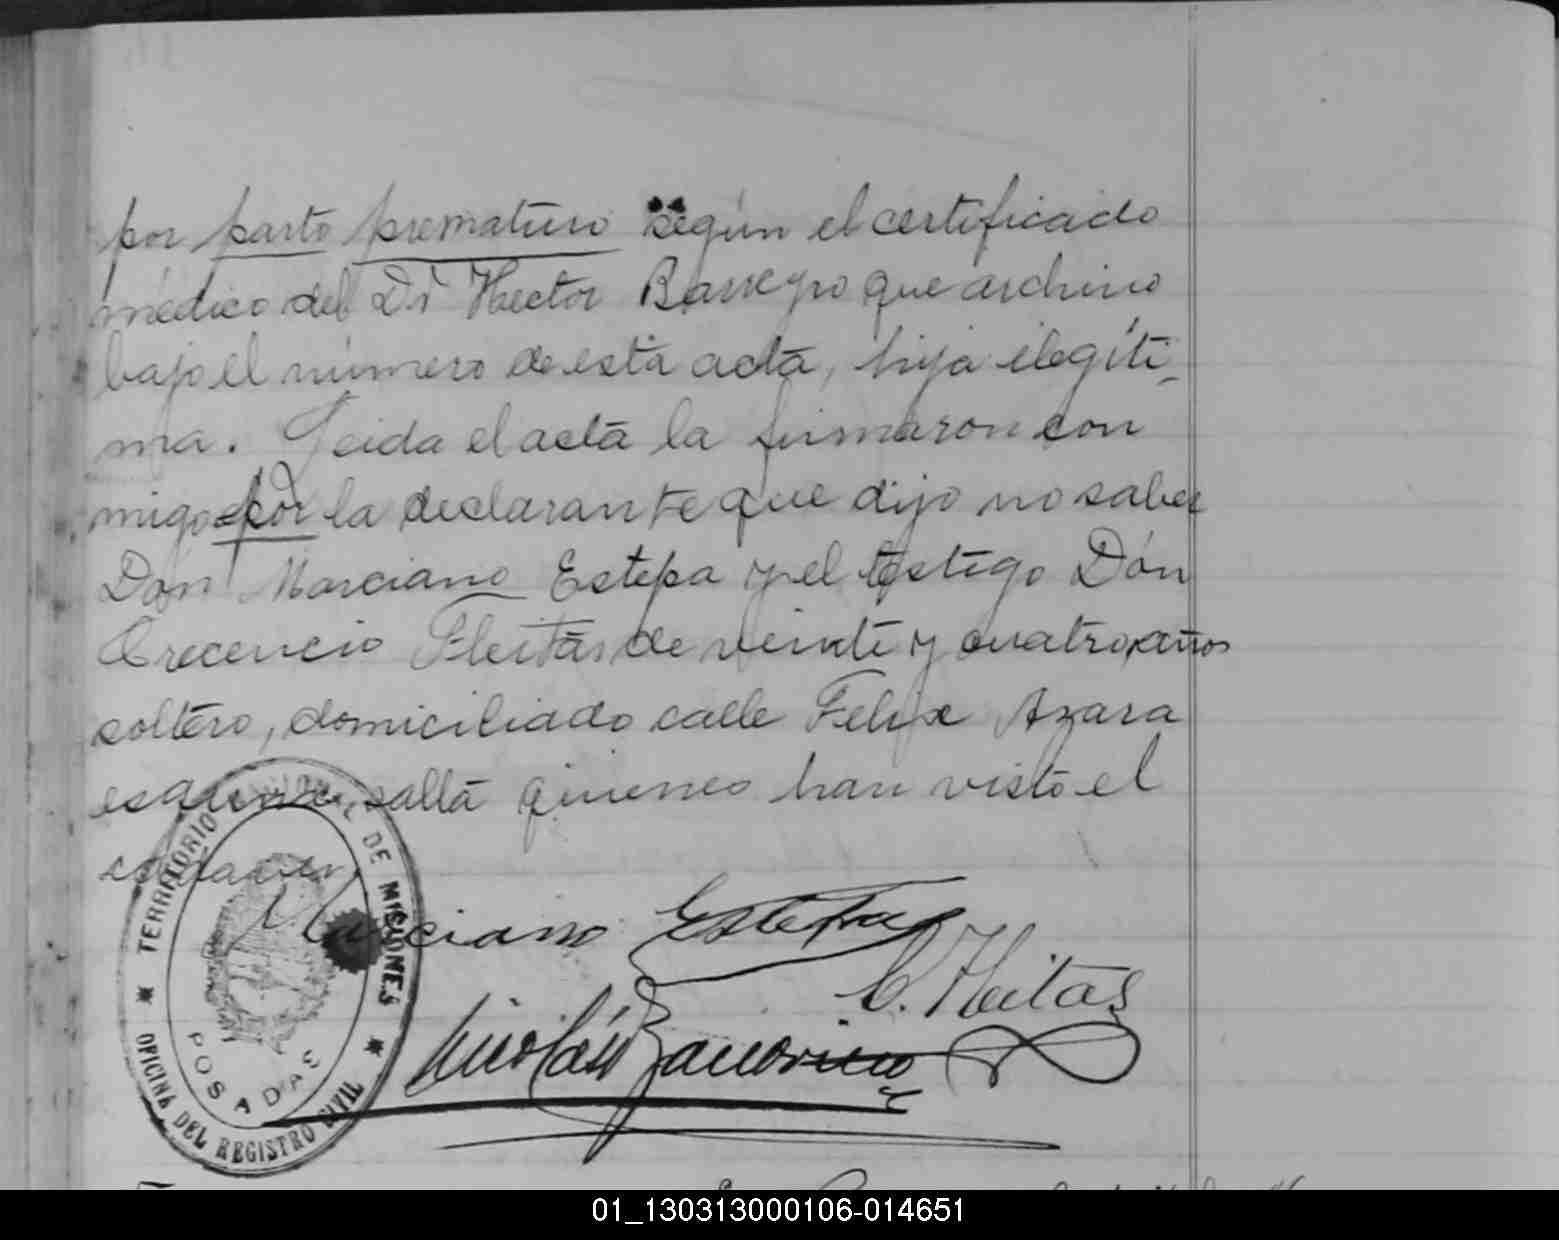 por parto prematuro según el certificado
médico del Dr Hector Barreyro que archivo
bajo el número de esta acta, hija ilegíti-
ma. Leida el acta la firmaron con
migo por la declarante que dijo no saber
Don Marciano Estepa y el testigo Dón
Crecencio Fleitas de veinte y cuatro años
soltero, domiciliado calle Felix Azara
esquina salta quienes han visto el
cadaver.
Marciano Estepa
C. Fleitas
Nicolás
TERRITORIO NACIONAL DE MISIONES
OFICINA DEL REGISTRO CIVIL
POSADAS
01_130313000106-014651